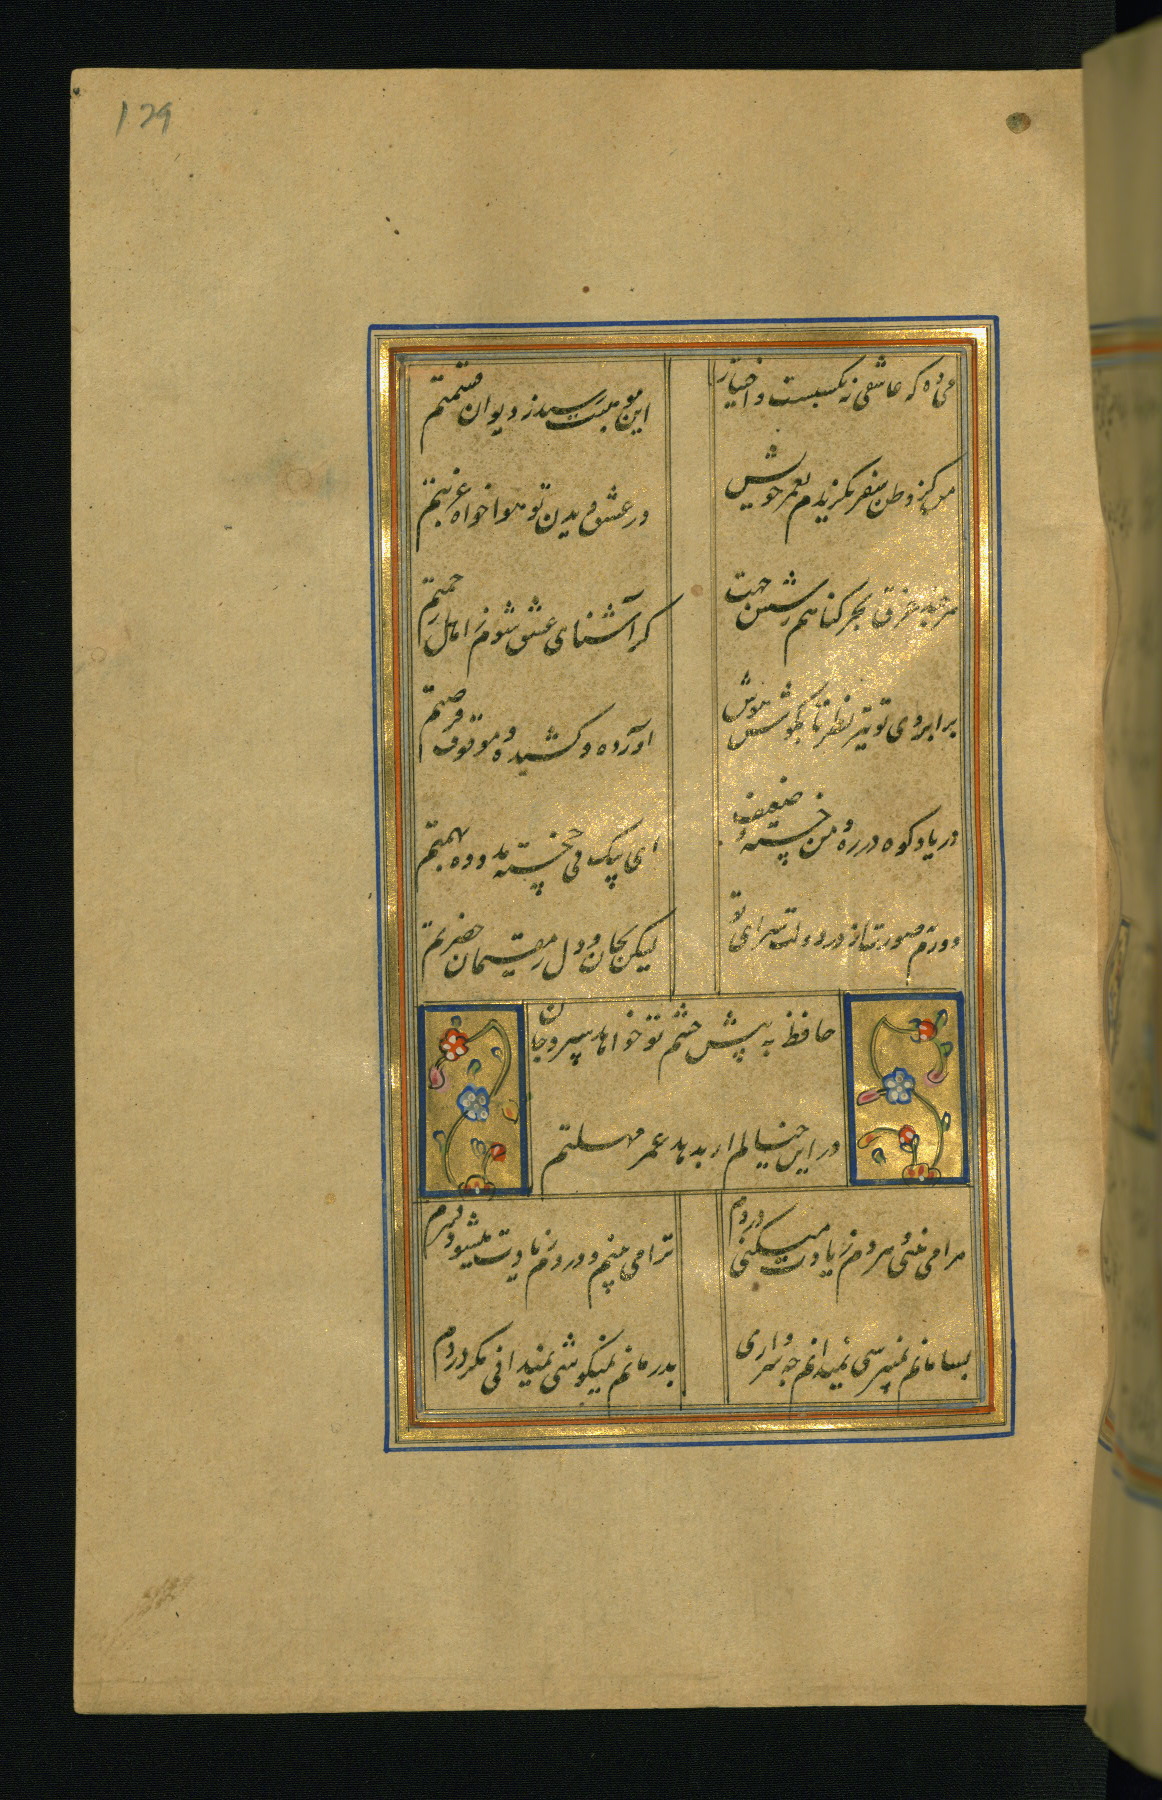 129
می ده که عاشقی نه بکسبست و اختیار
این موهبت رسید ز دیوان قسمتم
من کز وطن سفر نگزیدم بعمر خویش
در عشق دیدن تو هوا خواه غربتم
هر چند غرق بحر گناهم ز شش جهت
گر آشنای عشق شوم ز اهل رحمتم
بر ابروی تو تیر نظر تا بگوش هوش
آورده و کشیده و موقوف فرصتم
دریا و کوه در ره و من خسته و ضعیف
ای پیک پی خجسته مدد ده بهمتم
دورم بصورت از در دولت سرای تو
لیکن بجان و دل ز مقیمان حضرتم
حافظ به پیش چشم تو خواهد سپرد جان
در این خیالم ار بدهد عمر مهلتم
مرا می بینی و هر دم زیادت میکنی دردم
ترا می بینم و در دم زیادت میشود هر دم
بسامانم نمیپرسی نمیدانم چه سر داری
بدرمانم نمیکوشی نمیدانی مگر دردم